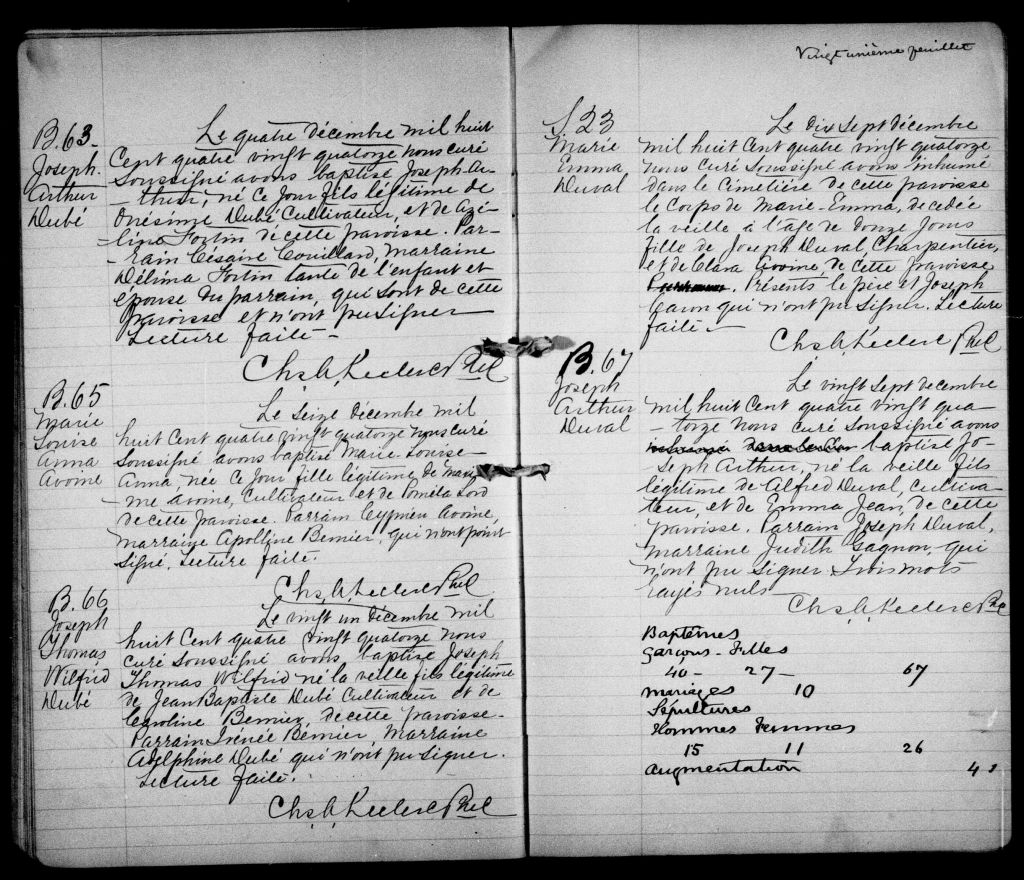 B.63-
Joseph.
Arthur
Dubé
Le quatre décembre mil huit
Cent quatre vingt quatorze nous curé
Soussigné avons baptisé Joseph-Ar-
-thur, né ce jour fils légitime de
Onésime Dubé Cultivateur, et de Azi-
-line Fortin de cette paroisse. Par-
-rain Césaire Couillard, marraine
Délima Fortin tante de l'enfant et
épouse du parrain, qui sont de cette
paroisse et n'ont pu signer
Lecture faite -
Chs. A. Leclerc Ptre
B.65
Marie
Louise
Anna
Avoine
Le Seize décembre mil
huit Cent quatre vingt quatorze nous curé
Soussigné avons baptisé Marie-Louise-
Anna, née ce jour fille légitime de
me Avoine, Cultivateur et de Lord
de cette paroisse. Parrain Cyprien Avoine,
marraine Apolline Bernier, qui n'ont point
signé, Lecture faite.
Chs. A. Leclerc Ptre
B.66
Joseph
Thomas
Wilfrid
Dubé
Le vingt un décembre mil
huit Cent quatre vingt quatorze nous
curé Soussigné avons baptisé Joseph
Thomas Wilfrid né la veille fils légitime
de Jean Baptiste Dubé Cultivateur et de
Caroline Bernier, de cette paroisse-
Parrain Irénée Bernier, Marraine
Adelphine Dubé qui n'ont pu signer.
Lecture faite.
Chs. A. Leclerc Ptre
Vingt unième feuillet
S 23
Marie
Emma
Duval
Le dix Sept décembre
mil huit Cent quatre vingt quatorze
nous curé Soussigné avons Inhumé
dans le Cimetière de cette paroisse
le Corps de Marie-Emma, decedée
la veille à l'âge de douze Jours
fille de Joseph Duval Charpentier,
et de Clara Avoine, de cette paroisse
. Présents le père et Joseph
Caron qui n'ont pu signer. Lecture
faite -
Chs. A. Leclerc Ptre
B.67
Joseph
Arthur
Duval
Le vingt sept decembre
mil huit Cent quatre vingt qua-
-torze nous curé Soussigné avons
baptisé Jo-
seph Arthur, né la veille fils
légitime de Alfred Duval, cultiva-
teur, et de Emma Jean, de cette
paroisse. Parrain Joseph Duval,
marraine Judith Gagnon, qui
n'ont pu signer. Trois mots
rayés nuls
Chs. A. Leclerc Ptre
Baptêmes
Garçons - Filles
40 - 27 - 67
Mariages 10
Sépultures
Hommes Femmes
15 11 26
Augmentation 41